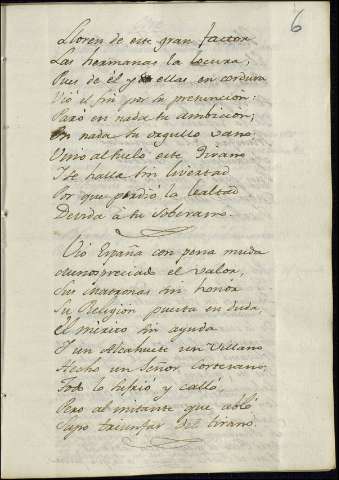 6
Lloren de este gran factor
Las hermanas la locura,
Pues de él y de ellas en cordura
Vió el fin por su presuncion;
Paró en nada tu ambicion;
En nada tu orgullo vano;
Vino al suelo este Tirano
Y se halla sin livertad
Por que perdió la lealtad
Devida á tu soberano.
Vió España con pena muda
el valor,
Sus matronas sin honor
Su Religion puesta en duda,
el mérito sin ayuda
Y un Alcahuete un Villano
Hecho un Señor Cortesano;
Todo lo sufrió y calló,
Pero al instante que abló
Supo triunfar del tirano.